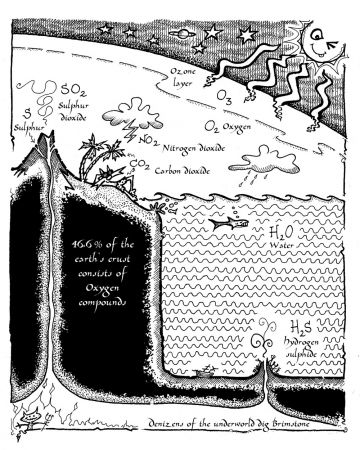 Ozone
layer
O3
SO2
Sulphur
dioxide
S
Sulphur
O2 Oxygen
NO2
Nitrogen dioxide
CO2
Carbon dioxide
46.6% of the
earth's crust
consists of
Oxygen
compounds
H2O
Water
H2S
hydrogen
sulphide
Denizens of the underworld dig Brimstone